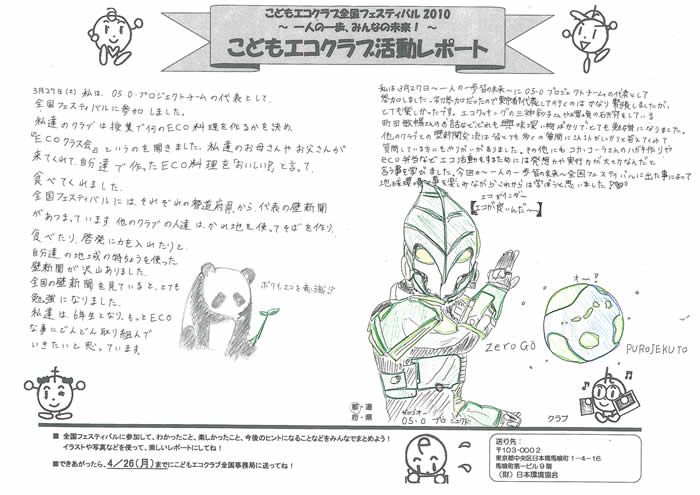 こどもエコクラブ全国フェスティバル 2010
～ 一人の一歩、みんなの未来！ ～
こどもエコクラブ活動レポート
3月27日(土) 私は、05０-プロジェクトチームの代表として、
全国フェスティバルに参加しました。
私達のクラブは授業で行のECO料理を作るかを決め、
『ECOクラス会』というのを開きました。私達のお母さんやお父さんが
来てくれて、自分達で作ったECO料理を「おいしい!!」と言って、
食べてくれました。
全国フェスティバルには、それぞれの都道府県から、代表の壁新聞
があつまっています 他のクラブの人達は、かれ地を使ってそばを作り、
食べたり、啓発に力を入れたりと、
自分達の地域の特ちょうを使った
壁新聞が沢山ありました。
全国の壁新聞を見ていると、とても
勉強になりました。
私達は、6年生となり、もっとECO
な事にどんどん取り組んで
いきたいと思っています。
ボクもエコを意識!?
私は3月27日～一人の一歩皆の未来～に05・0プロジェクトチームの代表として
参加しました。初参加だったので東京都代表として行くのはかなり緊張しましたが、
とても楽しかったです。
質問している方にもやりがいがありました。その他にもコカ・コーラさんのハガキ作りや
eco弁当など エコ活動をするためには発想力や実行力が大切なんだと
言う事を学びました。今回の～一人の一歩皆の未来～全国フェスティバルに出た事によって
地球環境の事を楽しみながらこれからは学ぼうと思いました
エコガインダー
【エコが良いんだ～】
オー?
ZeroGo
PUROJEKUTO
都・道
府・県
ゼロゴオー
05・0 プロジェクト
クラブ
■ 全国フェスティバルに参加して、わかったこと、楽しかったこと、今後のヒントになることなどをみんなでまとめよう！
イラストや写真などを使って、楽しいレポートにしてね！
■できあがったら、4／26(月)までにこどもエコクラブ全国事務局に送ってね！
送り先：
〒103-0002
東京都中央区日本橋馬喰町1-4-16
馬喰町第一ビル9階
(財) 日本環境協会